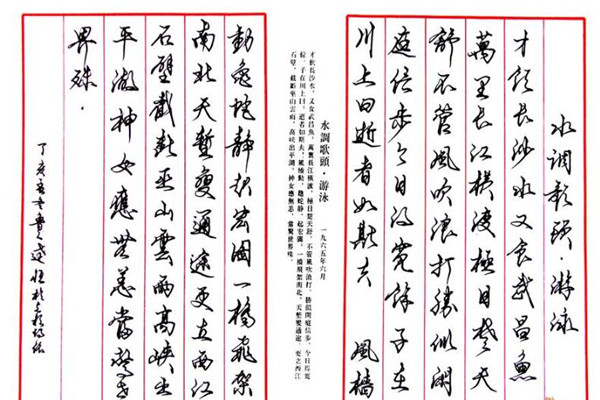 水調歌頭·游泳
才飲長沙水又食武昌魚
萬里長江橫渡極目楚天
舒不管風吹浪打勝似閑
庭信步今日得寬餘子在
川上曰逝者如斯夫 風檣
水調歌頭·游泳 一九六五年六月
才飲長沙水，又食武昌魚。萬里長江橫渡，極目楚天舒。不管風吹浪打，勝似閑庭信步，今日得寬
子在川上曰，逝者如斯夫。風檣動，龜蛇靜，起宏圖。一橋飛架南北，天塹變通途。更立西江
石壁，截斷巫山雲雨，高峽出平湖。神女應無恙，當驚世界殊。
動龜蛇靜起宏圖一橋飛架
南北天塹變通途更立西江
石壁截斷巫山雲雨高峽出
平湖神女應無恙當驚世
界殊.
丁亥